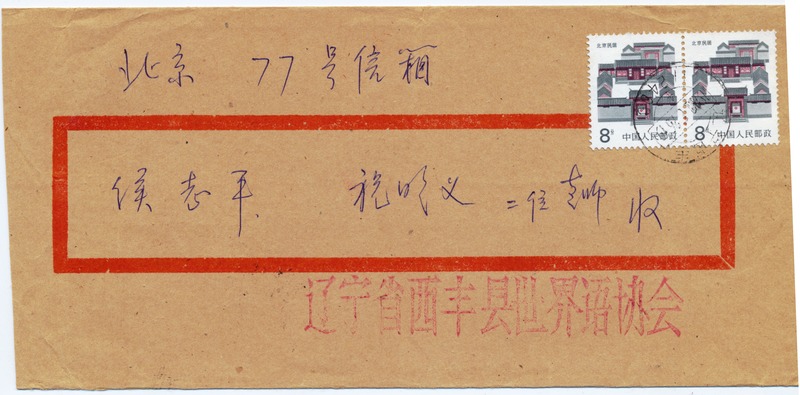 北京 77号信箱
北京民居
北京民居
8分 中国人民邮政
8分 中国人民邮政
侯志平 祝明义 二位老师 收
辽宁省西丰县世界语协会